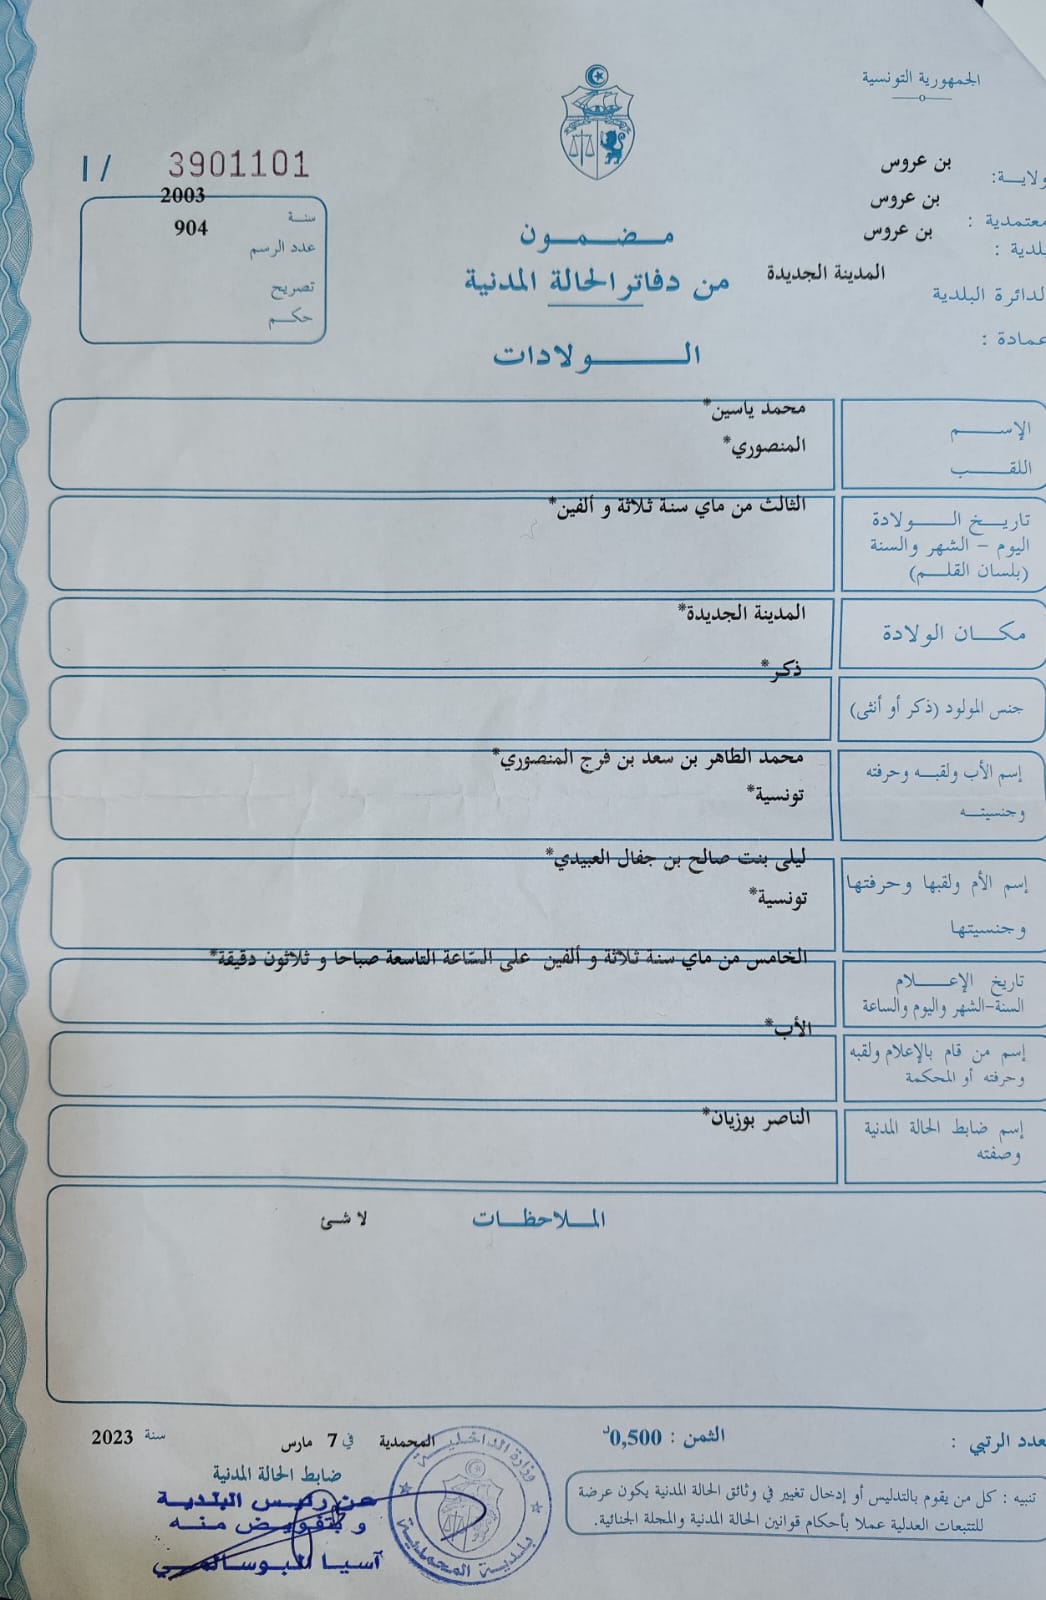 الجمهورية التونسية
ولاية: بن عروس
معتمدية : بن عروس
بلدية : بن عروس
الدائرة البلدية المدينة الجديدة
عمادة :
3901101 / I
سنة 2003
عدد الرسم 904
تصريح
حكم
مضمون
من دفاتر الحالة المدنية
الولادات
الإسم محمد ياسين*
اللقب المنصوري*
تاريخ الولادة الثالث من ماي سنة ثلاثة و ألفين*
اليوم – الشهر والسنة
(بلسان القلم)
مكان الولادة المدينة الجديدة*
جنس المولود (ذكر أو أنثى) ذكر*
إسم الأب ولقبه وحرفته محمد الطاهر بن سعد بن فرج المنصوري*
وجنسيته تونسية*
إسم الأم ولقبها وحرفتها ليلى بنت صالح بن جفال العبيدي*
وجنسيتها تونسية*
تاريخ الإعلام الخامس من ماي سنة ثلاثة و ألفين على السّاعة التاسعة صباحا و ثلاثون دقيقة*
السنة-الشهر واليوم والساعة
إسم من قام بالإعلام ولقبه الأب*
وحرفته أو المحكمة
إسم ضابط الحالة المدنية الناصر بوزيان*
وصفته
الملاحظات لا شئ
عدد الرتبي :
الثمن : 0,500د
المحمدية في 7 مارس سنة 2023
ضابط الحالة المدنية
عن رئيس البلدية
و بتفويض منه
آسيا
وزارة الداخلية
بلدية المحمدية
تنبيه : كل من يقوم بالتدليس أو إدخال تغيير في وثائق الحالة المدنية يكون عرضة
للتتبعات العدلية عملا بأحكام قوانين الحالة المدنية والمجلة الجنائية.